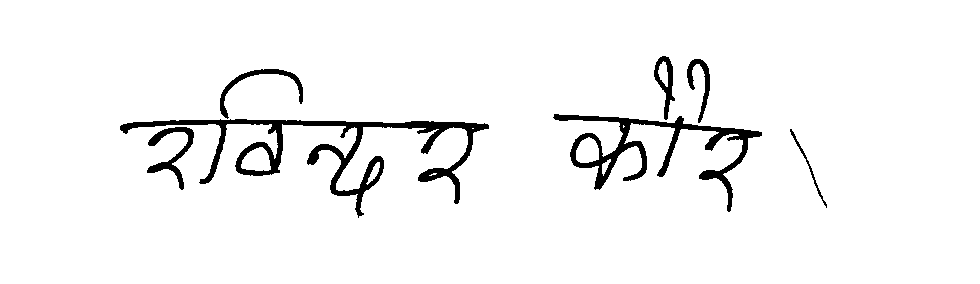 रविन्दर कौर।